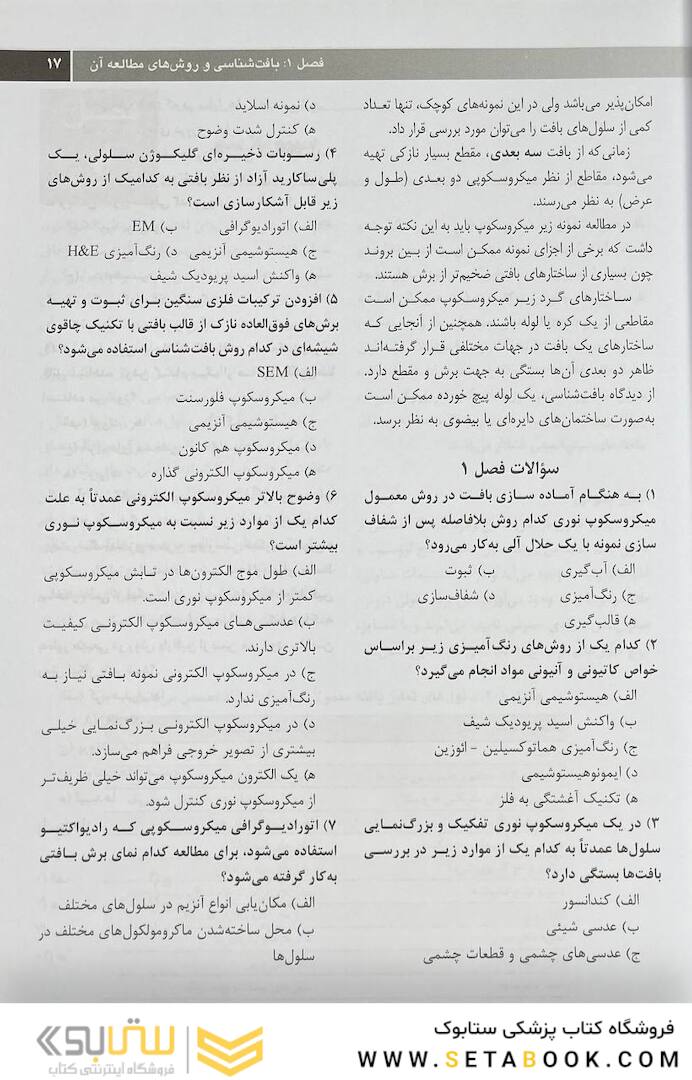 فصل ۱: بافت‌شناسی و روش‌های مطالعه آن ۱۷
امکان‌پذیر می‌باشد ولی در این نمونه‌های کوچک، تنها تعداد
کمی از سلول‌های بافت را می‌توان مورد بررسی قرار داد.
زمانی‌که از بافت سه بعدی، مقطع بسیار نازکی تهیه
می‌شود، مقاطع از نظر میکروسکوپی دو بعدی (طول و
عرض) به نظر می‌رسند.
در مطالعه نمونه زیر میکروسکوپ باید به این نکته توجه
داشت که برخی از اجزای نمونه ممکن است از بین بروند
چون بسیاری از ساختارهای بافتی ضخیم‌تر از برش هستند.
ساختارهای گرد زیر میکروسکوپ ممکن است
مقاطعی از یک کره یا لوله باشند. همچنین از آنجایی که
ساختارهای یک بافت در جهات مختلفی قرار گرفته‌اند
ظاهر دو بعدی آن‌ها بستگی به جهت برش و مقطع دارد.
از دیدگاه بافت‌شناسی، یک لوله پیچ خورده ممکن است
به‌صورت ساختمان‌های دایره‌ای یا بیضوی به نظر برسد.
سؤالات فصل ۱
۱) به هنگام آماده سازی بافت در روش معمول
میکروسکوپ نوری کدام روش بلافاصله پس از شفاف
سازی نمونه با یک حلال آلی به‌کار می‌رود؟
الف) آب‌گیری ب) ثبوت
ج) رنگ‌آمیزی د) شفاف‌سازی
ه) قالب‌گیری
۲) کدام یک از روش‌های رنگ‌آمیزی زیر براساس
خواص کاتیونی و آنیونی مواد انجام می‌گیرد؟
الف) هیستوشیمی آنزیمی
ب) واکنش اسید پریودیک شیف
ج) رنگ‌آمیزی هماتوکسیلین - ائوزین
د) ایمونوهیستوشیمی
ه) تکنیک آغشتگی به فلز
۳) در یک میکروسکوپ نوری تفکیک و بزرگ‌نمایی
سلول‌ها عمدتاً به کدام یک از موارد زیر در بررسی
بافت‌ها بستگی دارد؟
الف) کندانسور
ب) عدسی شیئی
ج) عدسی‌های چشمی و قطعات چشمی
د) نمونه اسلاید
ه) کنترل شدت وضوح
۴) رسوبات ذخیره‌ای گلیکوژن سلولی، یک
پلی‌ساکارید آزاد از نظر بافتی به کدامیک از روش‌های
زیر قابل آشکارسازی است؟
الف) اتورادیوگرافی ب) EM
ج) هیستوشیمی آنزیمی د) رنگ‌آمیزی H&E
ه) واکنش اسید پریودیک شیف
۵) افزودن ترکیبات فلزی سنگین برای ثبوت و تهیه
برش‌های فوق‌العاده نازک از قالب بافتی با تکنیک چاقوی
شیشه‌ای در کدام روش بافت‌شناسی استفاده می‌شود؟
الف) SEM
ب) میکروسکوپ فلورسنت
ج) هیستوشیمی آنزیمی
د) میکروسکوپ هم کانون
ه) میکروسکوپ الکترونی گذاره
۶) وضوح بالاتر میکروسکوپ الکترونی عمدتاً به علت
کدام یک از موارد زیر نسبت به میکروسکوپ نوری
بیشتر است؟
الف) طول موج الکترون‌ها در تابش میکروسکوپی
کمتر از میکروسکوپ نوری است.
ب) عدسی‌های میکروسکوپ الکترونی کیفیت
بالاتری دارند.
ج) در میکروسکوپ الکترونی نمونه بافتی نیاز به
رنگ‌آمیزی ندارد.
د) در میکروسکوپ الکترونی بزرگ‌نمایی خیلی
بیشتری از تصویر خروجی فراهم می‌سازد.
ه) یک الکترون میکروسکوپ می‌تواند خیلی ظریف‌تر
از میکروسکوپ نوری کنترل شود.
۷) اتورادیوگرافی میکروسکوپی که رادیواکتیو
استفاده می‌شود، برای مطالعه کدام نمای برش بافتی
به‌کار گرفته می‌شود؟
الف) مکان‌یابی انواع آنزیم در سلول‌های مختلف
ب) محل ساخته‌شدن ماکرومولکول‌های مختلف در
سلول‌ها
فروشگاه کتاب پزشکی ستابوک
WWW.SETABOOK.COM
ستابوک
فروشگاه اینترنتی کتاب